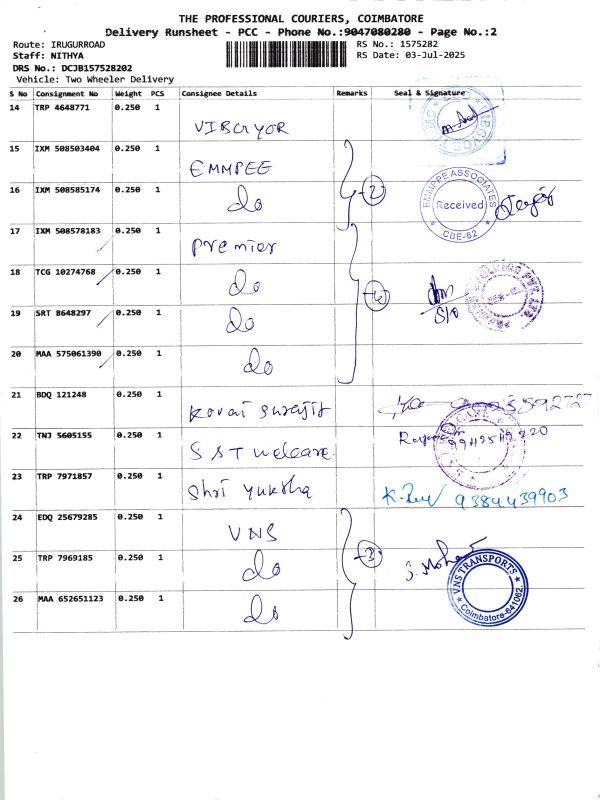 THE PROFESSIONAL COURIERS, COIMBATORE
Delivery Runsheet - PCC - Phone No.:9047080280 - Page No.:2
Route: IRUGURROAD
RS No.: 1575282
Staff: NITHYA
RS Date: 03-Jul-2025
DRS No.: DCJB157528202
Vehicle: Two Wheeler Delivery
S No Consignment No Weight PCS Consignee Details Remarks Seal & Signature
14 TRP 4648771 0.250 1
VIBGYOR
15 IXM 508503404 0.250 1
EMMPEE
16 IXM 508585174 0.250 1
do
2
EMMPPE ASSOCIATES
Received
CBE-62
17 IXM 508578183 0.250 1
Premier
18 TCG 10274768 0.250 1
do
4
19 SRT 8648297 0.250 1
do
20 MAA 575061390 0.250 1
do
21 BDQ 121248 0.250 1
Kovai Surajit
22 TNJ 5605155 0.250 1
SST welcare
23 TRP 7971857 0.250 1
Shri Yuktha
9384439903
24 EDQ 25679285 0.250 1
VNS
25 TRP 7969185 0.250 1
do
3
J. Mohan
26 MAA 652651123 0.250 1
do
VNS TRANSPORTS
Coimbatore-641062.